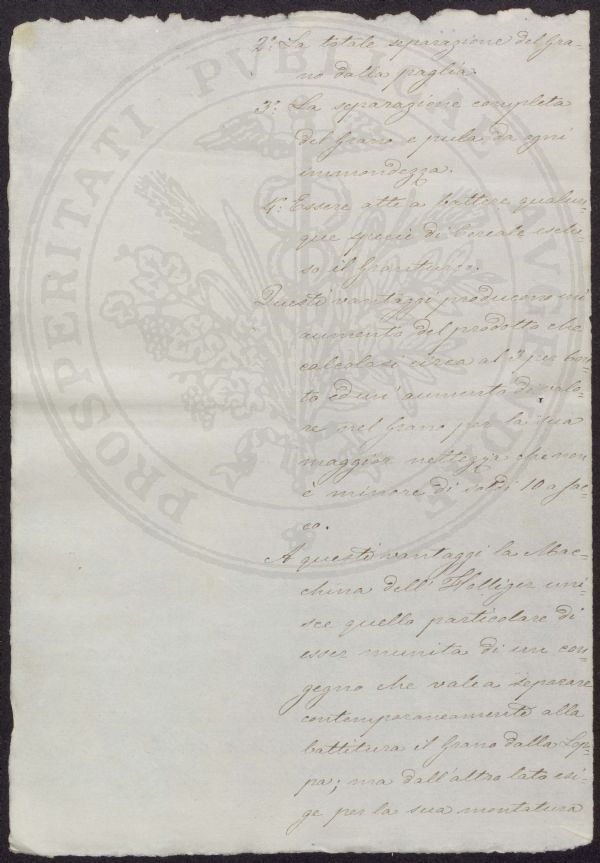 2.° La totale separazione del Gra-
no dalla paglia.
3.° La separazione completa
del Grano e pula da ogni
immondezza.
4.° Essere atte a battere qualun-
que specie di Cereale esclu-
so il Granturco.
Questi vantaggi producono un
aumento del prodotto che
calcolasi circa al 3 per Cen-
to ed un' aumento di valo-
re nel Grano per la sua
maggior nettezza che non
è minore di soldi 10 a Sac-
co.
A questi vantaggi la Mac-
china dell' Holliger uni-
sce quello particolare di
esser munita di un con-
gegno che vale a separare
contemporaneamente alla
battitura il Grano dalla Lop-
pa; ma dall'altro lato esi-
ge per la sua montatura
PROSPERITATI PVBLICAE AVGENDAE